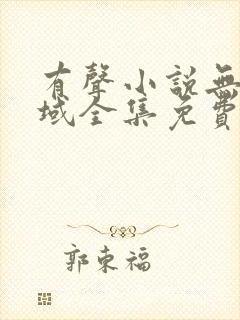 有聲小說無
域全集免費
郭東福